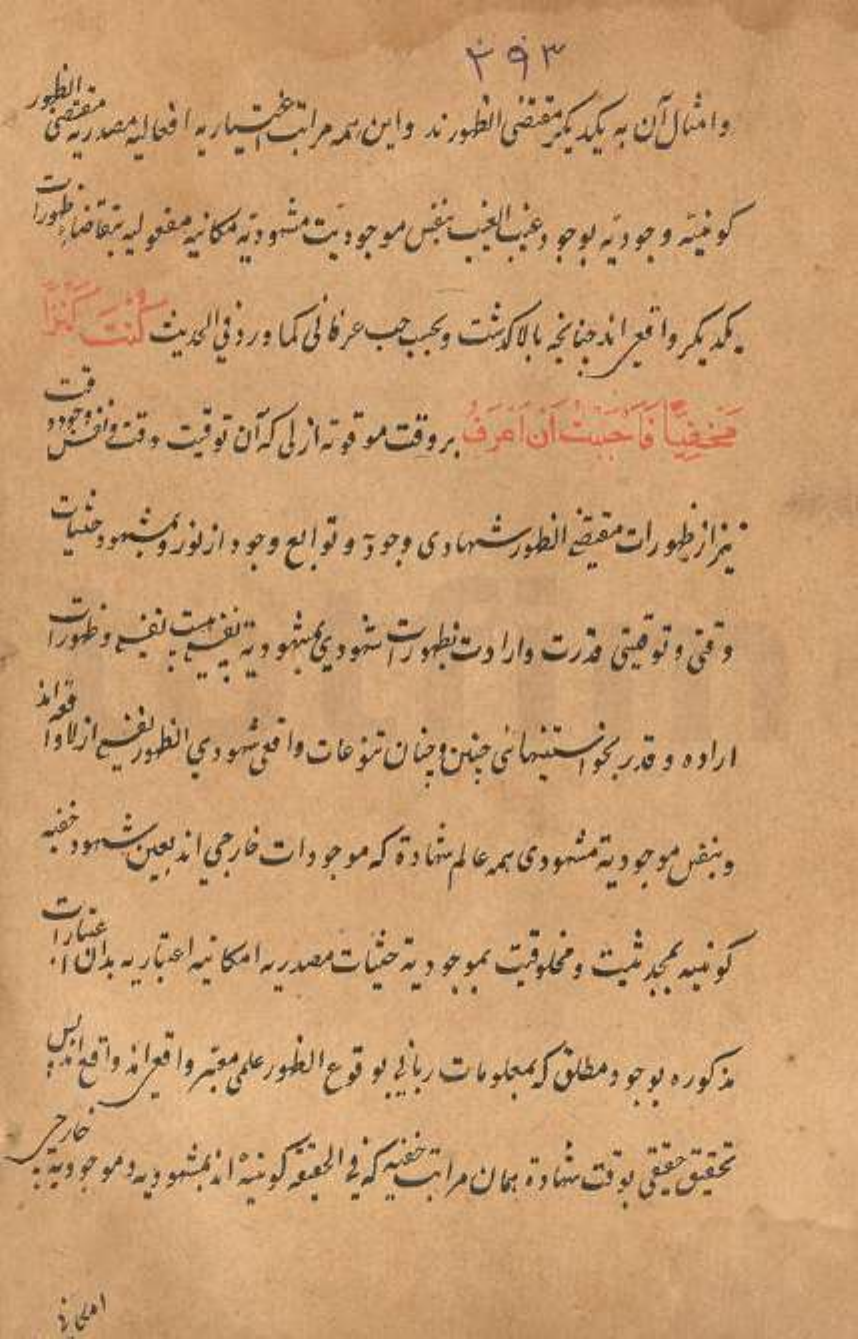 ۲۹۳
وامثال آن به یکدیگر مقتضی الظهورند واین همه مراتب اختیاریه افعالیه مصدریه مقتضی الظهور
کونیته وجودیه بوجود غیب الغیب بنفس موجودیت مشهودیه امکانیه مفعولیه بتقاضاء ظهورات
یکدیگر واقعی اند چنانچه بالا کذشت وبحسب حب عرفانی کما ورد فی الحدیث کُنتُ کَنزاً
مَخفِیّاً فَاَحبَبتُ اَن اُعرَفَ بر وقت موقوته ازلی که آن توقیت وقت ونفس وجود وقت
نیز از ظهورات مقتضی الظهور شهادی وجود و توابع وجود از نور وبمشهود حثیات
وقتی و توقیتی قدرت وارادت بظهورات شهودی بمشهودیة نفسیت نفسی و ظهورات
اراده و قدر بخواستنهائی چنین وچنان تنوعات واقعی شهودی الظهور نفسی ازلا واقع اند
وبنفس موجودیة مشهودی همه عالم شهادة که موجودات خارجی اند بعین شهود خفیه
کونییه بمحدثیت و مخلوقیت بموجودیة حثیات مصدریه امکانیه اعتباریه بدان اعتبارات
مذکوره بوجود مطلق که بمعلومات ربانی بوقوع الظهور علمی معتبر واقعی اند واقع اند پس
تحقیق حقیقی بوقت شهادة همان مراتب خفیه که فی الحقیقة کونیة اند بمشهودیه وموجودیة خارجی